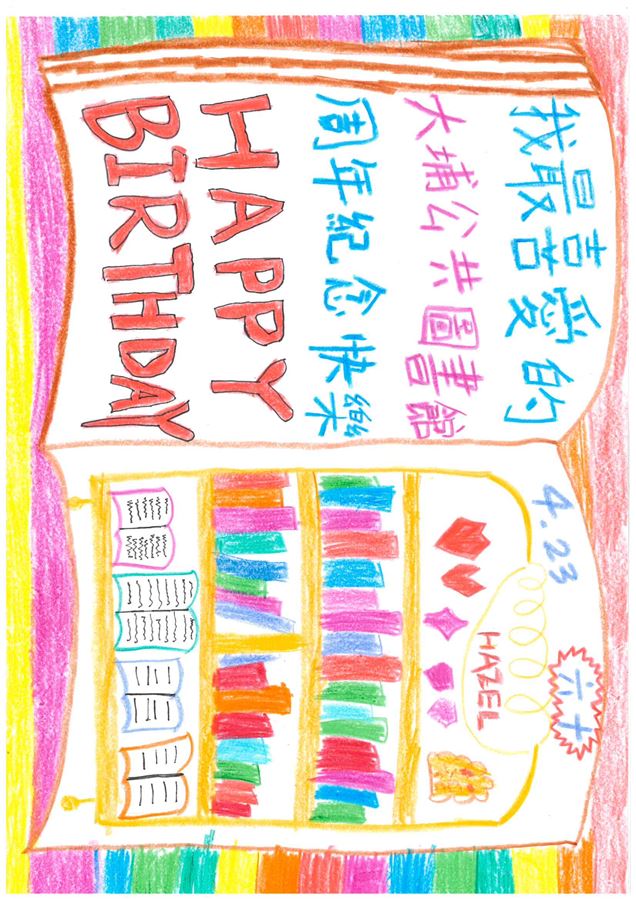 我最喜愛的
大埔公共圖書館
周年紀念快樂
HAPPY
BIRTHDAY
4.23
六十
HAZEL